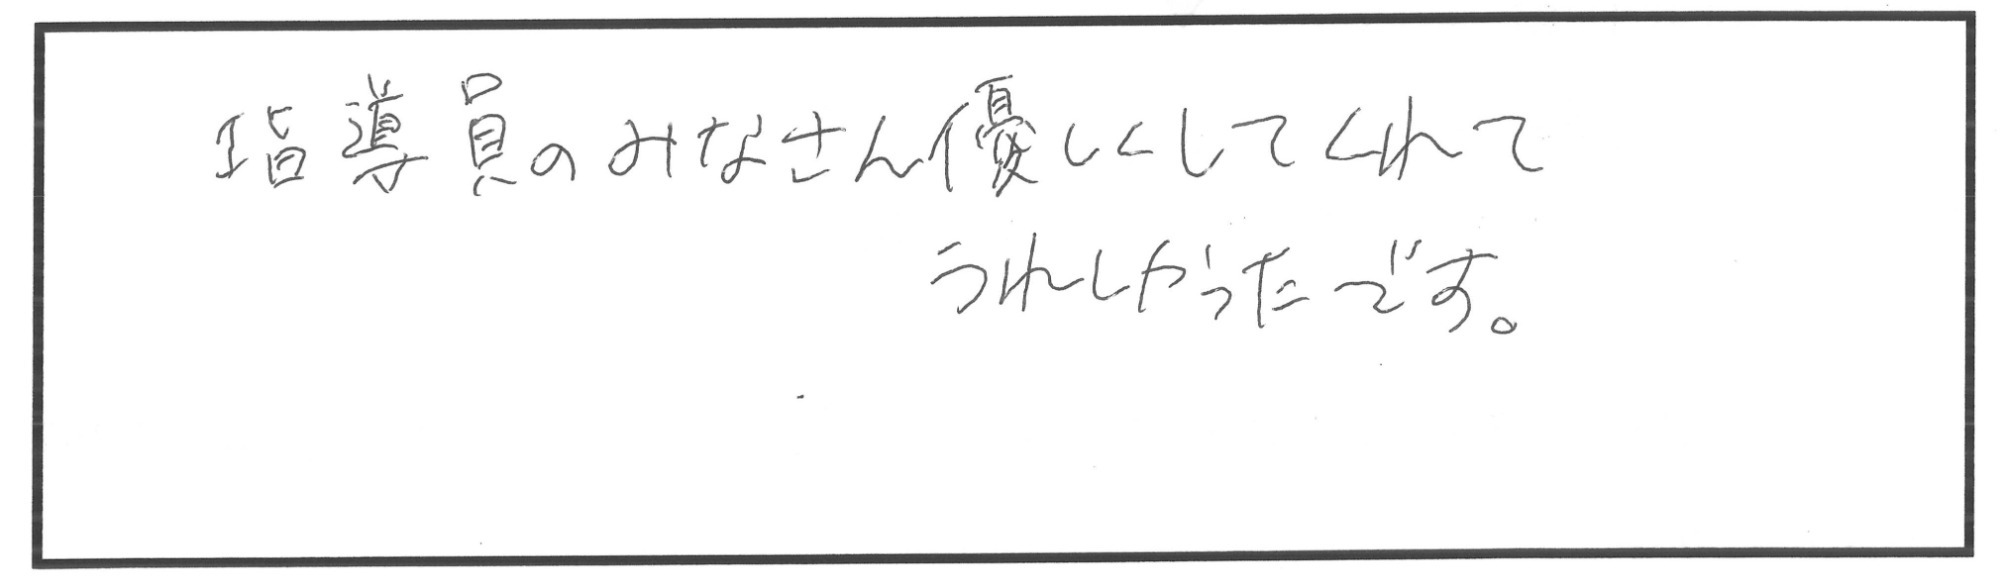 指導員のみなさん優しくしてくれて
うれしかったです。